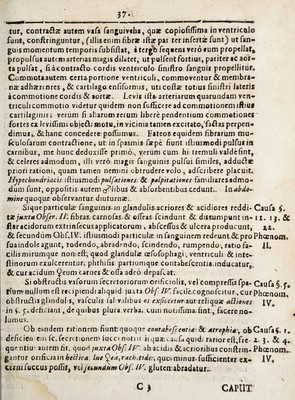 37.
tur, contractæ autem vasa sanguiveha, quæ copiosissima in ventriculo
sunt, constringuntur, (illis enim fibræ istæ par ter insertæ sunt) ut san-
guis momentum temporis subsistat, à tergo sequens verò eum propellat,
propulsus autem arterias magis dilatet, ut pulsent fortius, pariter ac aor-
ta pulsat, si à contractis cordis ventriculo sinistro sanguis propellitur.
Commota autem certa portione ventriculi, commoventur & membra-
næ adhærentes, & cartilago ensiformis, uti costæ totius sinistri lateris
à commotione cordis & aortæ. Levis ista arteriarum quarundam ven-
triculi commotio videtur quidem non sufficere ad commotionem istius
cartilaginis; verùm si aliarum rerum liberè pendentium commotiones
fortes ex levissimis objecti motu, in vicinia tantùm excitato, satis perpen-
dimus, & hanc concedere possumus. Fateor equidem fibrarum mu-
sculosarum contractione, ut in spasmis sæpè fiunt istiusmodi pulsus in
carnibus, nec hunc deduxisse primò, verùm cum hi tremuli valdè sint,
& celeres admodum, illi verò magis sanguinis pulsui similes, adductæ
priori rationi, quam tamen nemini obrudere volo, adscribere placuit.
Hypochondriacis istiusmodi pulsationes & palpitationes familiares admo-
dum sunt, oppositis autem ♂libus & absorbentibus cedunt. In abdo-
mine quoque observantur diuturnæ.
Sique particulæ sanguinis in glandulis acriores & acidiores reddi-
tæ juxta Obser. II. fibras carnosas & osseas scindunt & distumpunt in-
star acidorum extrinsecus applicatorum, abscessus & ulcera producunt,
& secundum Obs. IV. istiusmodi particulæ in sanguinem redeunt & pro
sua indole agunt, todendo, abradendo, scindendo, rumpendo, ratio fa-
cilis mirumque non est; quod glandulæ œsofophagi, ventriculi & inte-
stinorum exulcerentur, phthisis partiumque contabescentia inducatur,
& cur acidum ♀eum carnes & ossa adeò depascat.
Si obstructis vasorum secretoriorum orificiolis, vel compressis spa-
tium nullum est repiendi aliquid juxta Obs. IV. facilè cognoscitur, cur
obstructis glandulis, vasculis salivalibus os exsiccetur aut reliquæ actiones
in §. 5. deficiant, de quibus plura verba, cum notissima sunt, facere no-
lumus.
Ob eindem rationem fiunt quoque contabescentiæ & atrophiæ, ob
defectum enim sc. secretionem lucci nutritii, quæ causa aquidi rarior est, fre-
quentior autem fit, quod juxta Obs. IV. ab acidis & acrioribus constrin-
gantur orificia in hectica, lue ♀ea, rachitide, quo minus sufficienter ex-
cerni succus possit, vel secundum Obs. IV. gluten abradatur.
Causa §.
11. 13. &
22.
Phœnom.
II.
Causa §. 5.
Phœnom.
IV.
Causa §. 1.
2. 3. & 4.
Phœnom.
IV.
C 3
CAPUT